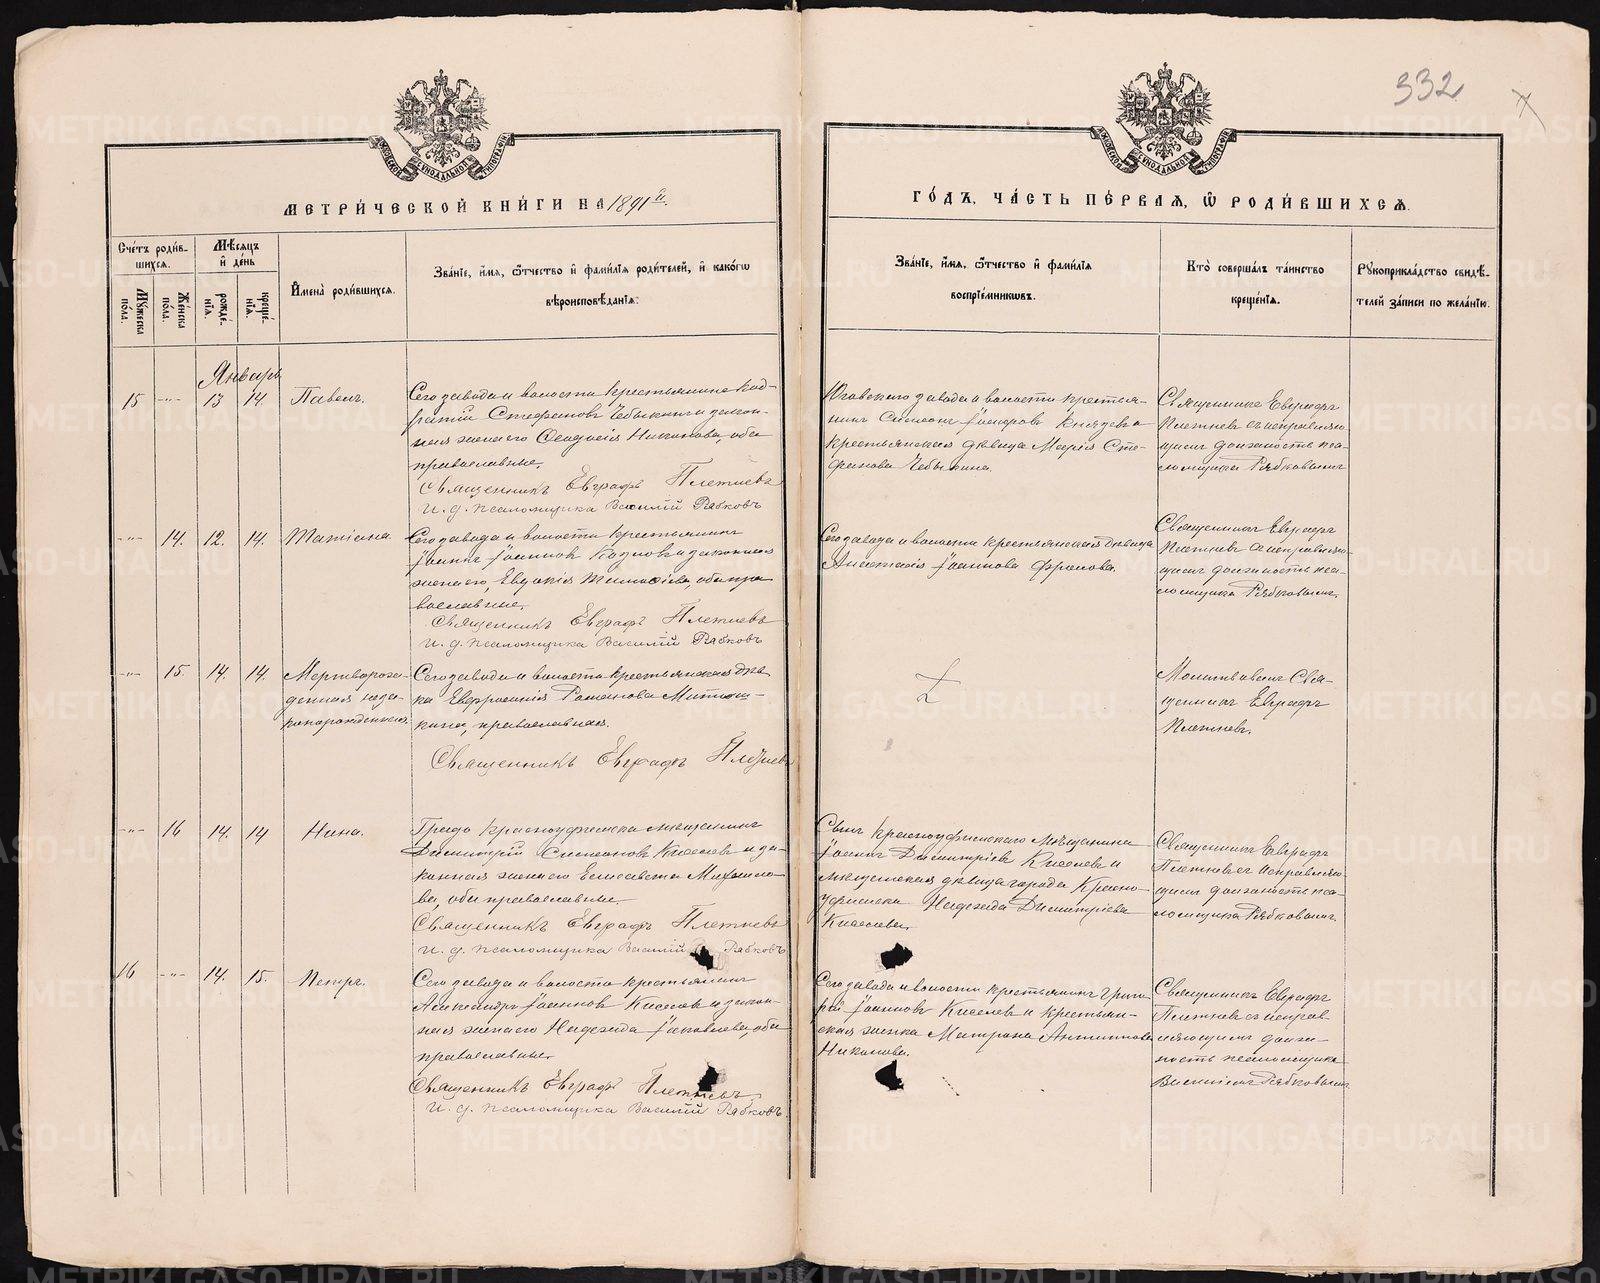 332
МЕТРИЧЕСКОЙ КНИГИ НА 1891й.
ГОДЪ, ЧАСТЬ ПЕРВАЯ, Ѿ РОДИВШИХСЯ.
Счетъ родившихся.
Мужеска пола.
Женска пола.
Мѣсяцъ и день
рожденія.
крещенія.
Имена родившихся.
Званіе, имя, ѿтчество и фамилія родителей, и какогѡ
вѣроисповѣданія.
Званіе, имя, ѿтчество и фамилія
воспріемникѡвъ.
Кто совершалъ таинство
крещенія.
Рукоприкладство свидѣ-
телей записи по желанію.
Январь
15 -"- 13 14. Павелъ.
Сего завода и волости крестьянинъ Код-
ратій Стефановъ Чебыкинъ и закон-
ная жена его Феодосія Никонова, оба
православные.
Священникъ Евграфъ Плетневъ
И. д. псаломщика Василій Рябковъ
Юговскаго завода и волости крестья-
нинъ Симеонъ Князевъ и
крестьянская дѣвица Марія Сте-
фанова Чебыкина.
Священникъ Евграфъ
Плетневъ съ исправляю-
щимъ должность пса-
ломщика Рябковымъ
-"- 14. 12. 14. Татіана.
Сего завода и волости крестьянинъ
Іоаннъ Іоанновъ Козловъ и законная
жена его, Евдокія Тимофеева, оба пра-
вославные.
Священникъ Евграфъ Плетневъ
И. д. псаломщика Василій Рябковъ
Сего завода и волости крестьянская дѣвица
Анастасія Іоаннова Фролова.
Священникъ Евграфъ
Плетневъ съ исправляю-
щимъ должность пса-
ломщика Рябковымъ.
-"- 15. 14. 14. Мертворож-
денная неза-
коннорожденная
Сего завода и волости крестьянская дѣв-
ка Евфросинія Романова
православная.
Священникъ Евграфъ Плетневъ
Молитвовалъ Свя-
щенникъ Евграфъ
Плетневъ.
-"- 16 14. 14 Нина.
Града Красноуфимска мѣщанинъ
Димитрій Симеоновъ Киселевъ и за-
конная жена его Елисавета Михаило-
ва, оба православные.
Священникъ Евграфъ Плетневъ
И. д. псаломщика Василій Рябковъ
Сынъ Красноуфимскаго мѣщанина
Іоаннъ Димитріевъ Киселевъ и
мѣщанская дѣвица города Красно-
уфимска Надежда Димитріева
Киселева.
Священникъ Евграфъ
Плетневъ съ исправляю-
щимъ должность пса-
ломщика Рябковымъ.
16 -"- 14. 15. Петръ.
Сего завода и волости крестьянинъ
Александръ Іоанновъ Киселевъ и закон-
ная жена его Надежда Іаковлева, оба
православные.
Священникъ Евграфъ Плетневъ.
И. д. псаломщика Василій Рябковъ.
Сего завода и волости крестьянинъ Григо-
рій Іоанновъ Киселевъ и крестьян-
ская женка Матрона Антипова
Никонова.
Священникъ Евграфъ
Плетневъ съ исправ-
ляющимъ долж-
ность псаломщика
Василіемъ Рябковымъ
METRIKI.GASO-URAL.RU